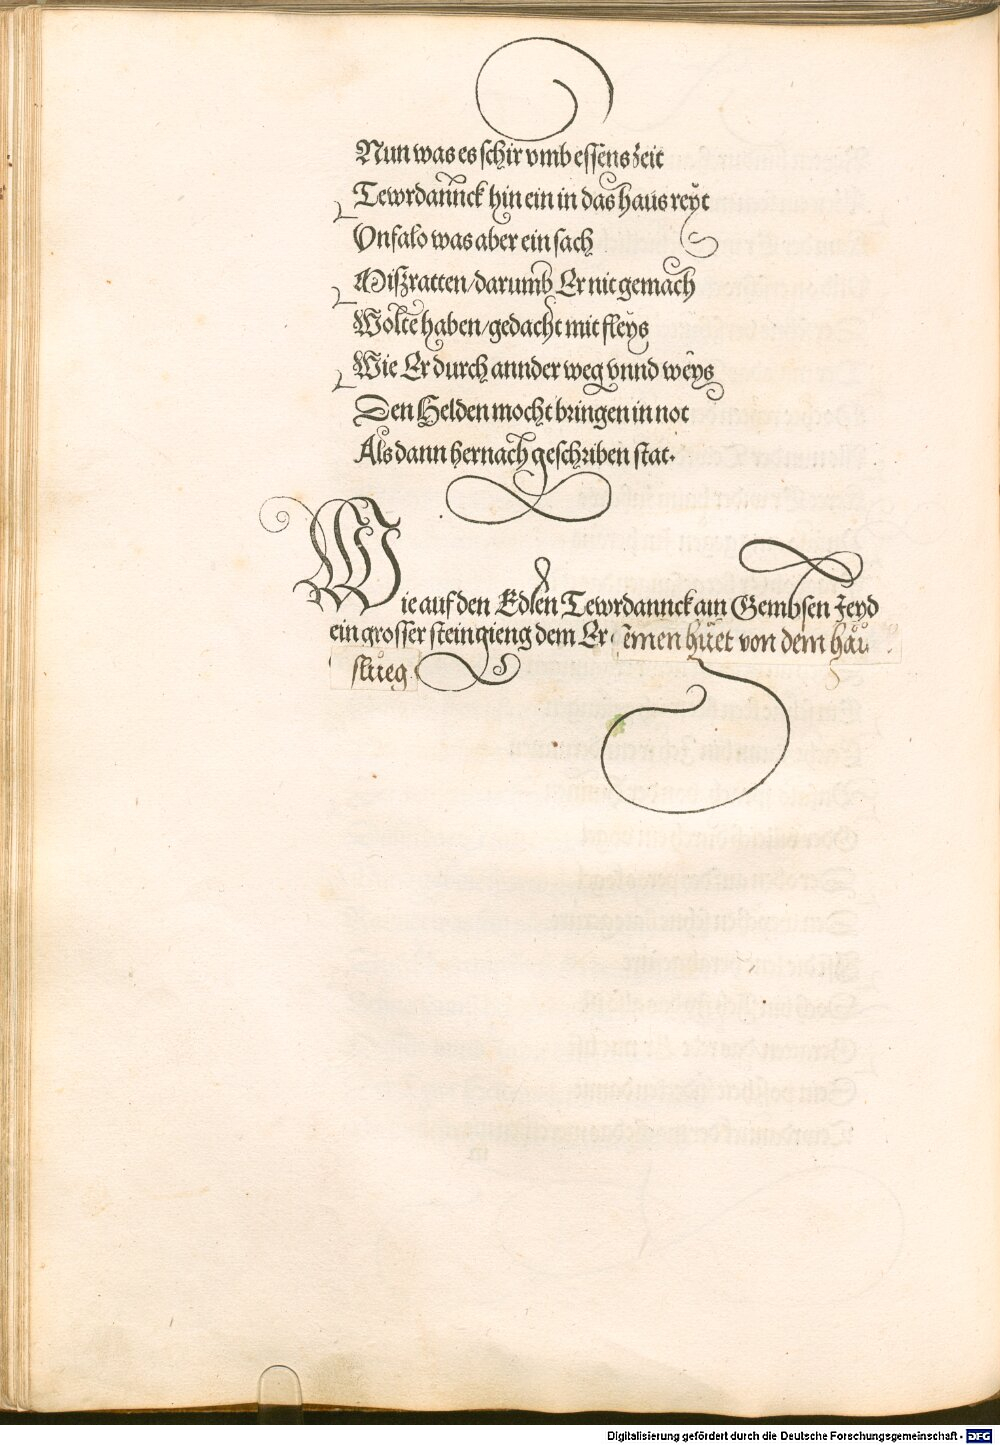 Nun was es schir vmb essens zeit
Tewrdannck hin ein in das haus reÿt
Vnfalo was aber ein sach
Miszratten/darumb Er nit gemach
Wolte haben/gedacht mit fleÿs
Wie Er durch annder weg vnnd weÿs
Den Helden mocht bringen in not
Als dann hernach geschriben stat.
Wie auf den Edlen Tewrdannck am Gembsen Jeyd
ein grosser stein gieng dem Er einen hůet von dem haů
slueg.
Digitalisierung gefördert durch die Deutsche Forschungsgemeinschaft - DFG